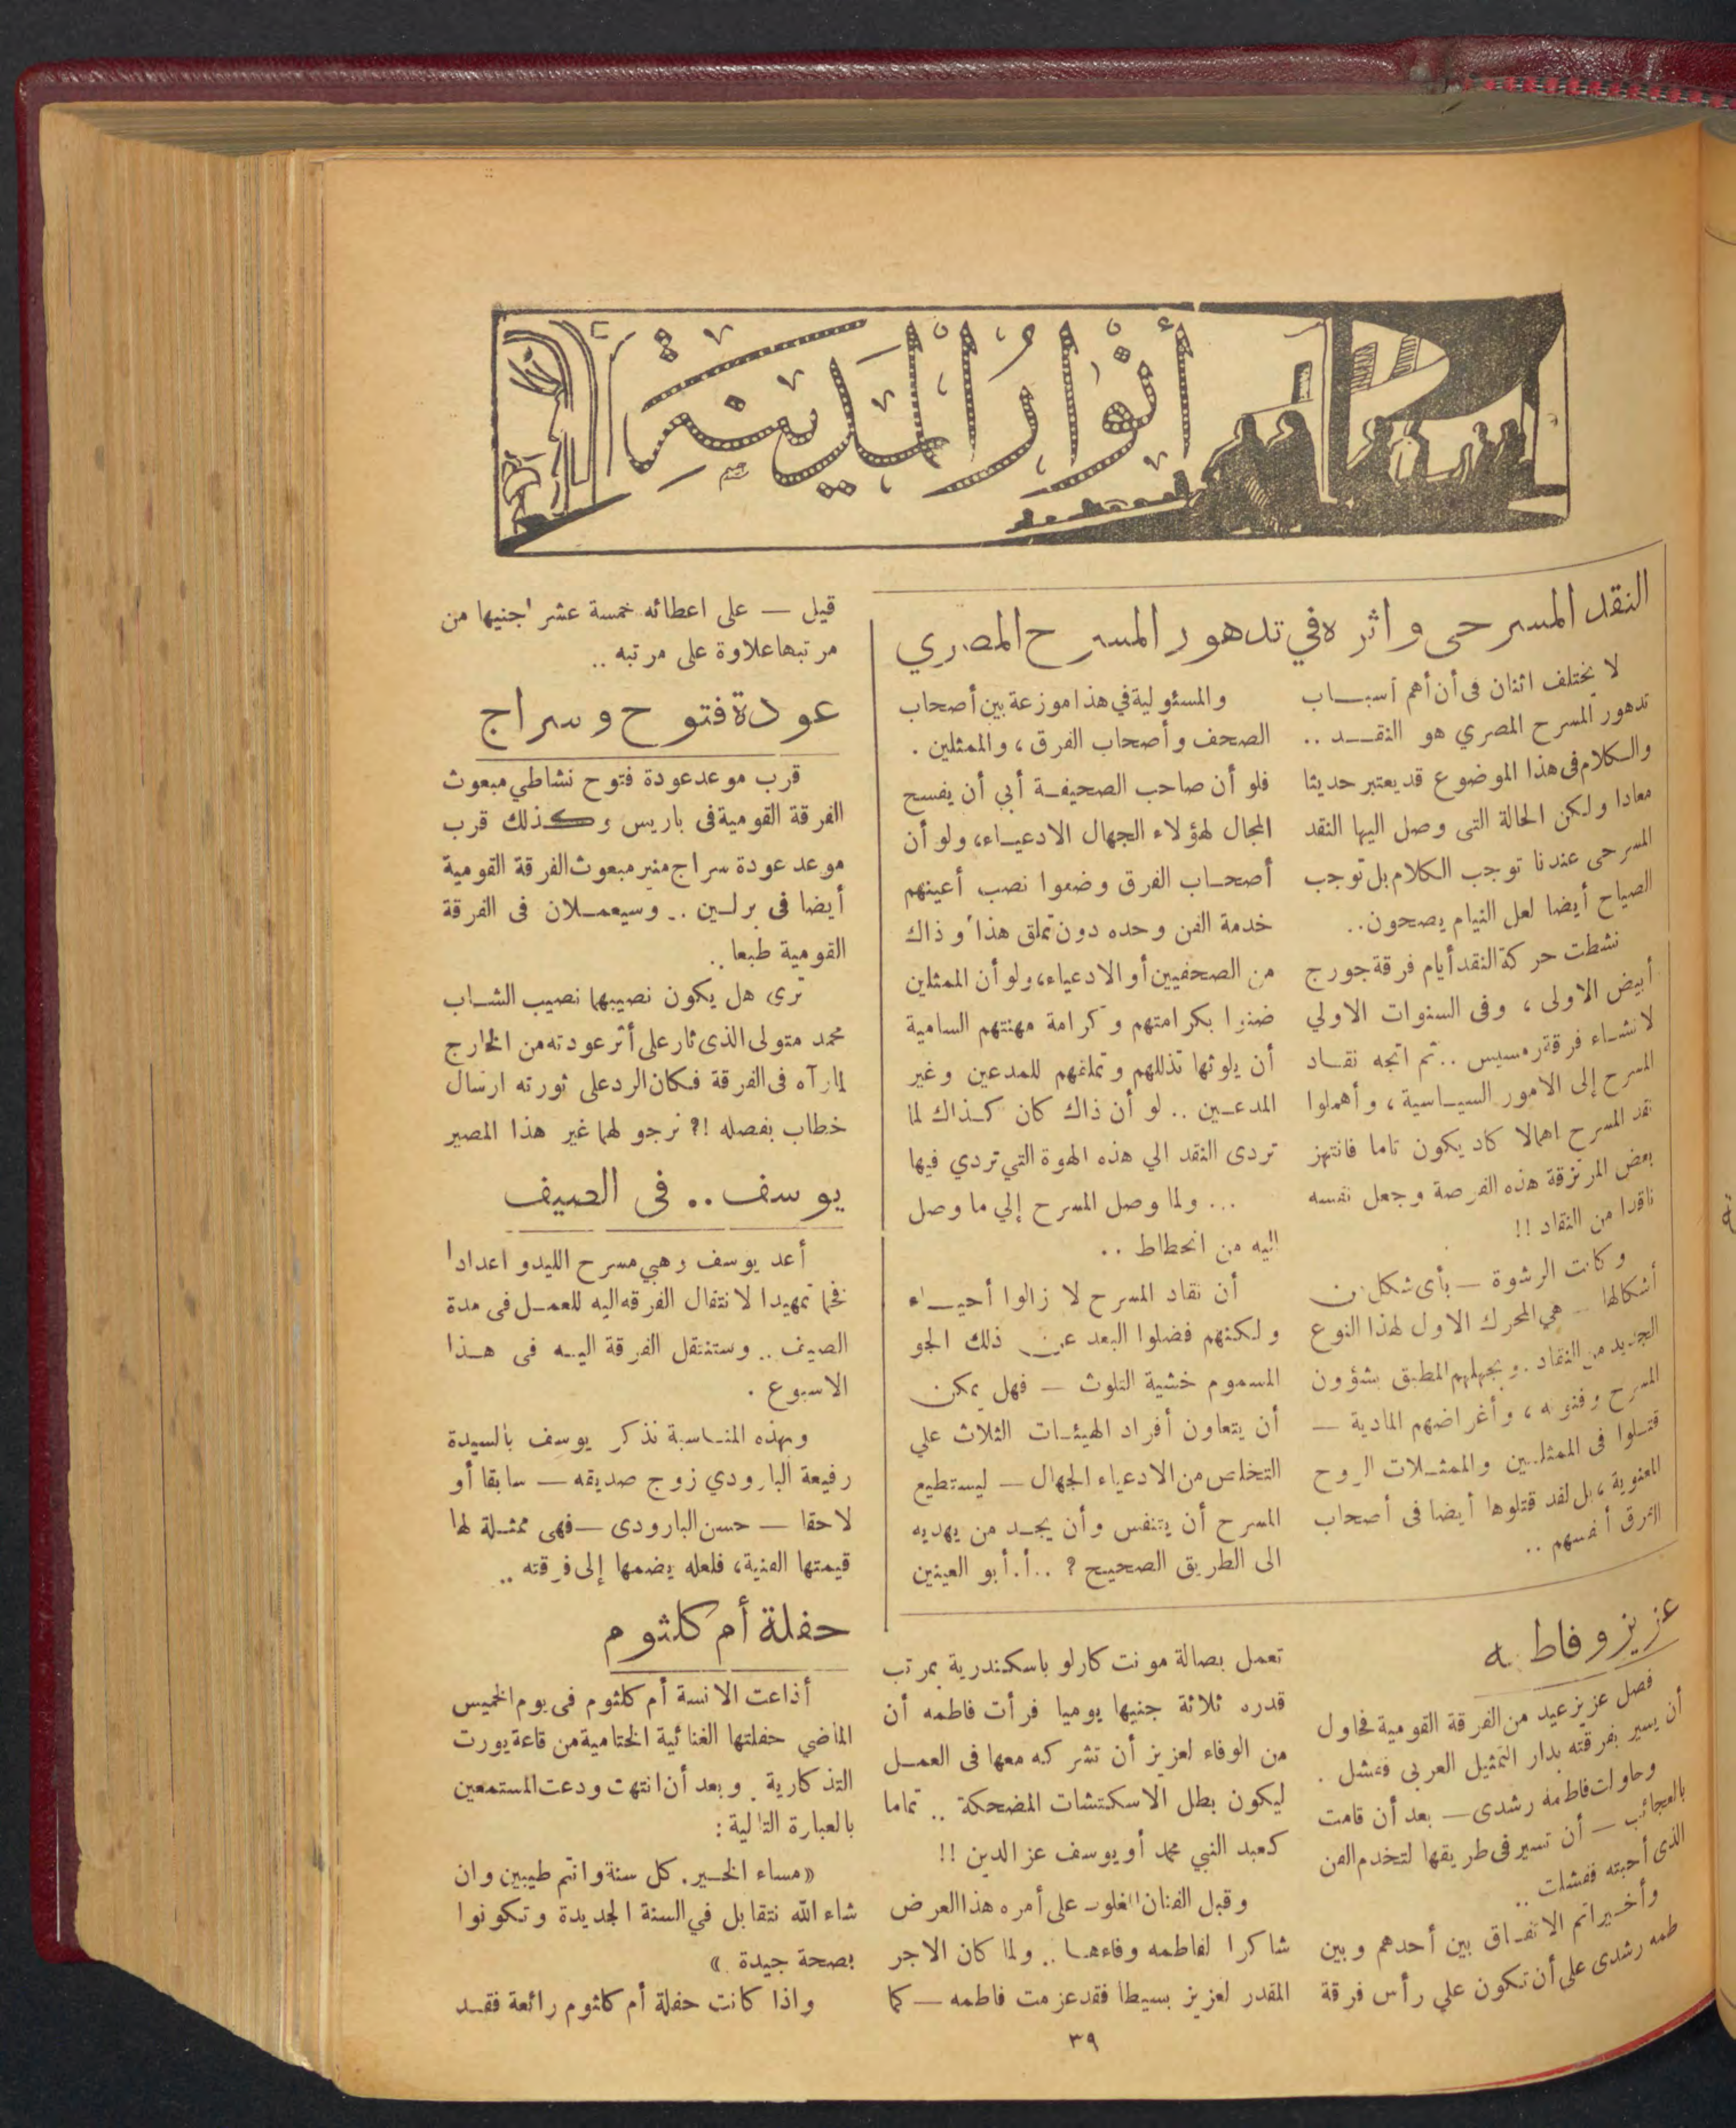 أنوار المدينة
النقد المسرحى واثره في تدهور المسرح المصري
لا يختلف اثنان فى أن أهم أسباب
تدهور المسرح المصري هو النقد ..
والكلام فى هذا الموضوع قد يعتبر حديثا
معادا ولكن الحالة التى وصل اليها النقد
المسرحى عندنا توجب الكلام بل توجب
الصياح أيضا لعل النيام يصحون..
نشطت حركة النقد أيام فرقة جورج
أبيض الاولى ، وفى السنوات الاولي
لانشاء فرقة رمسيس .. ثم اتجه نقاد
المسرح إلى الامور السياسية ، وأهملوا
نقد المسرح اهمالا كاد يكون تاما فانتهز
بعض المرتزقة هذه الفرصة وجعل نفسه
ناقدا من النقاد !!
وكانت الرشوة — بأى شكل من
أشكالها — هي المحرك الاول لهذا النوع
الجديد من النقاد . وبجهلهم المطبق بشؤون
المسرح وفنونه ، وأغراضهم المادية —
قتلوا فى الممثلين والممثلات الروح
المعنوية ، بل لقد قتلوها أيضا فى أصحاب
الفرق أنفسهم ..
والمسئولية في هذا موزعة بين أصحاب
الصحف وأصحاب الفرق ، والممثلين .
فلو أن صاحب الصحيفة أبي أن يفسح
المجال لهؤلاء الجهال الادعياء، ولو أن
أصحاب الفرق وضعوا نصب أعينهم
خدمة الفن وحده دون تملق هذا وذاك
من الصحفيين أو الادعياء، ولو أن الممثلين
ضنوا بكرامتهم وكرامة مهنتهم السامية
أن يلوثها تذللهم وتملقهم للمدعين وغير
المدعين .. لو أن ذاك كان كذاك لما
تردى النقد الي هذه الهوة التي تردي فيها
... ولما وصل المسرح إلي ما وصل
اليه من انحطاط ..
أن نقاد المسرح لا زالوا أحياء
ولكنهم فضلوا البعد عن ذلك الجو
المسموم خشية التلوث — فهل يمكن
أن يتعاون أفراد الهيئات الثلاث علي
التخلص من الادعياء الجهال — ليستطيع
المسرح أن يتنفس وأن يجد من يهديه
الى الطريق الصحيح ؟ .. أ . أبو العينين
عزيز وفاطمه
فصل عزيز عيد من الفرقة القومية فحاول
أن يسير بفرقته بدار التمثيل العربى ففشل .
وحاولت فاطمه رشدى — بعد أن قامت
بالعجائب — أن تسير فى طريقها لتخدم الفن
الذى أحبته ففشلت ..
وأخيرا تم الاتفاق بين أحدهم وبين
طمه رشدى على أن تكون علي رأس فرقة
تعمل بصالة مونت كارلو باسكندرية بمرتب
قدره ثلاثة جنيها يوميا فرأت فاطمه أن
من الوفاء لعزيز أن تشركه معها فى العمل
ليكون بطل الاسكتشات المضحكة .. تماما
كعبد النبي محمد أو يوسف عز الدين !!
وقبل الفنان المغلوب على أمره هذا العرض
شاكرا لفاطمه وفاءها .. ولما كان الاجر
المقدر لعزيز بسيطا فقد عزمت فاطمه — كما
قيل — على اعطائه خمسة عشر جنيها من
مرتبها علاوة على مرتبه ..
عودة فتوح وسراج
قرب موعد عودة فتوح نشاطي مبعوث
الفرقة القومية فى باريس وكذلك قرب
موعد عودة سراج منير مبعوث الفرقة القومية
أيضا فى برلين .. وسيعملان فى الفرقة
القومية طبعا ..
ترى هل يكون نصيبهما نصيب الشاب
محمد متولى الذى ثار على أثر عودته من الخارج
لما رآه فى الفرقة فكان الرد على ثورته ارسال
خطاب بفصله !؟ نرجو لهما غير هذا المصير
يوسف .. فى الصيف
أعد يوسف وهبي مسرح الليدو اعدادا
فخما تمهيدا لانتقال الفرقه اليه للعمل فى مدة
الصيف .. وستنتقل الفرقة اليه فى هذا
الاسبوع .
وبهذه المناسبة نذكر يوسف بالسيدة
رفيعة البارودي زوج صديقه — سابقا أو
لاحقا — حسن البارودى — فهى ممثلة لها
قيمتها الفنية ، فلعله يضمها إلى فرقته ..
حفلة أم كلثوم
أذاعت الانسة أم كلثوم فى يوم الخميس
الماضي حفلتها الغنائية الختامية من قاعة يورت
التذكارية . وبعد أن انتهت ودعت المستمعين
بالعبارة التالية :
« مساء الخير . كل سنة وانتم طيبين وان
شاء الله نتقابل في السنة الجديدة وتكونوا
بصحة جيدة . »
واذا كانت حفلة أم كلثوم رائعة فقد
٣٩